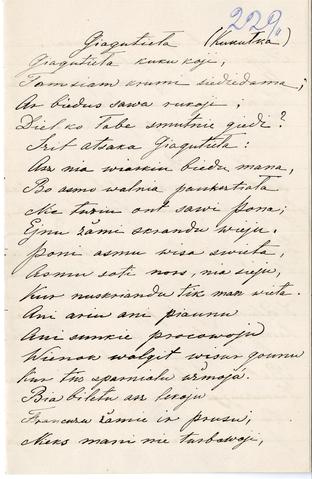 229.
Giagutiela (Kukutka)
Giagutiela kuku koji,
Tamsiam krumi siediedama;
Ar biedus sawa rukoji;
Diel ko Tabe smutnie giedi?
Szit atsaka Giagutiela:
Asz nia wiaskiu biedu mana,
Bo asmo walnia paukartiata
Nia turiu ont sawi pona;
Ejnu žâmi skrandu wieju.
Poni asmu wisa swieta,
Asmu soti noro, nia sieju,
Kur nuskriandu tik man wieta.
Ani ariu ani piaunu
Ani sunkie procowoju
Wienok walgit wisur gounu
Kur tik sparnialu užmoja.
Bia biletu asz lekoju
Francuzu žâmie ir prusu,
Neks mani nie turbawoji,